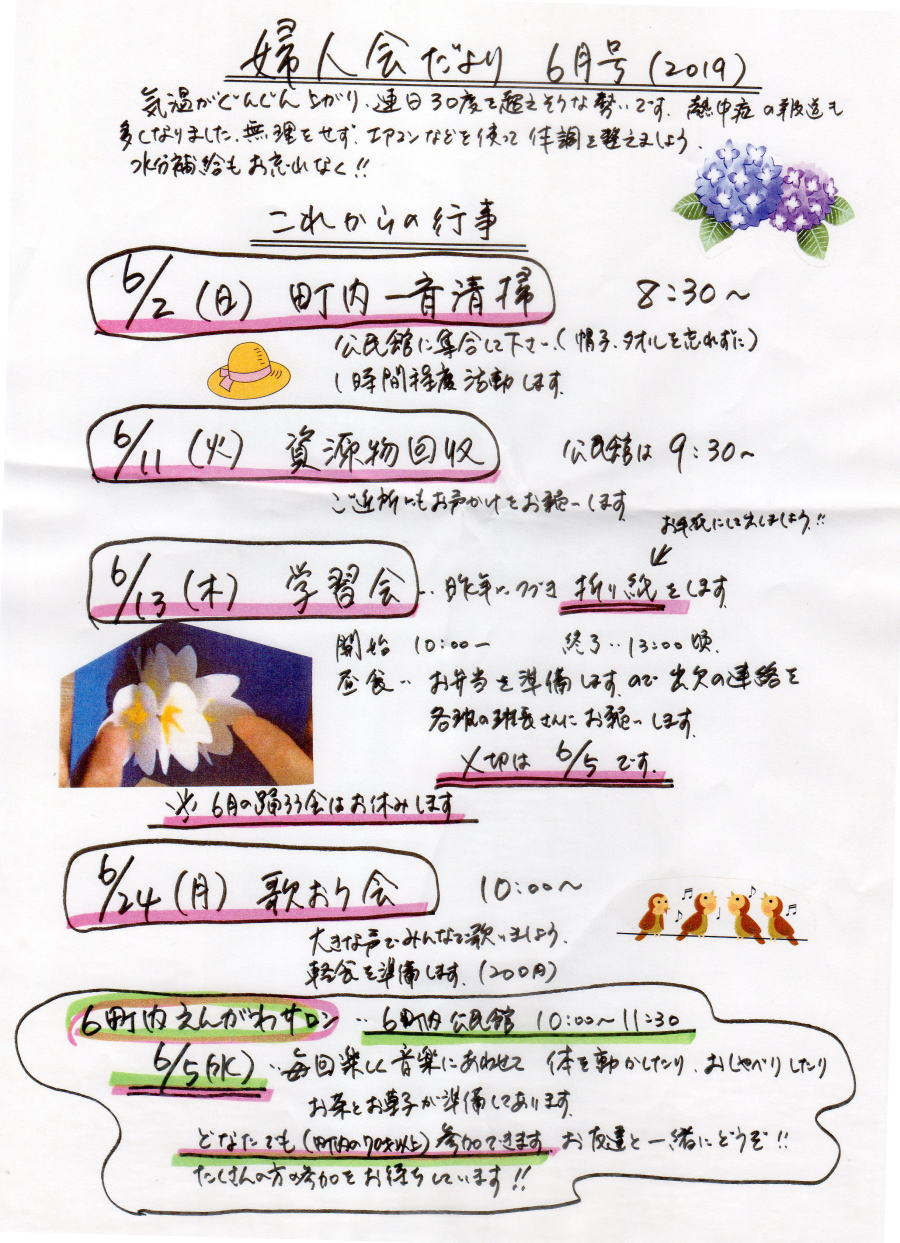 婦人会だより 6月号(2019)
気温がぐんぐん上がり、連日30度を超えそうな勢いです。熱中症の報道も
多くなりました。無理をせず、エアコンなどを使って体調を整えましょう。
水分補給もお忘れなく!!
これからの行事
6/2(日) 町内一斉清掃 8:30~
公民館に集合して下さい。(帽子、タオルを忘れずに)
1時間程度活動します。
6/11(火) 資源物回収 公民館は 9:30~
ご近所にもお声かけをお願いします
お手紙にして出しましょう!!
6/13(木) 学習会‥昨年につづき 折り紙をします
開始 10:00~ 終了‥13:00頃
昼食‥ お弁当を準備しますので出欠の連絡を
各班の班長さんにお願いします。
〆切は 6/5です。
※ 6月の踊ろう会はお休みします
6/24(月) 歌おう会 10:00~
大きな声でみんなで歌いましょう。
軽食を準備します。(200円)
6町内えんがわサロン‥6町内公民館 10:00~11:30
6/5(水)‥毎回楽しく音楽にあわせて 体を動かしたり、おしゃべりしたり
お茶とお菓子が準備してあります。
どなたでも(町内の70才以上)参加できます。お友達と一緒にどうぞ!!
たくさんの方の参加をお待ちしています!!